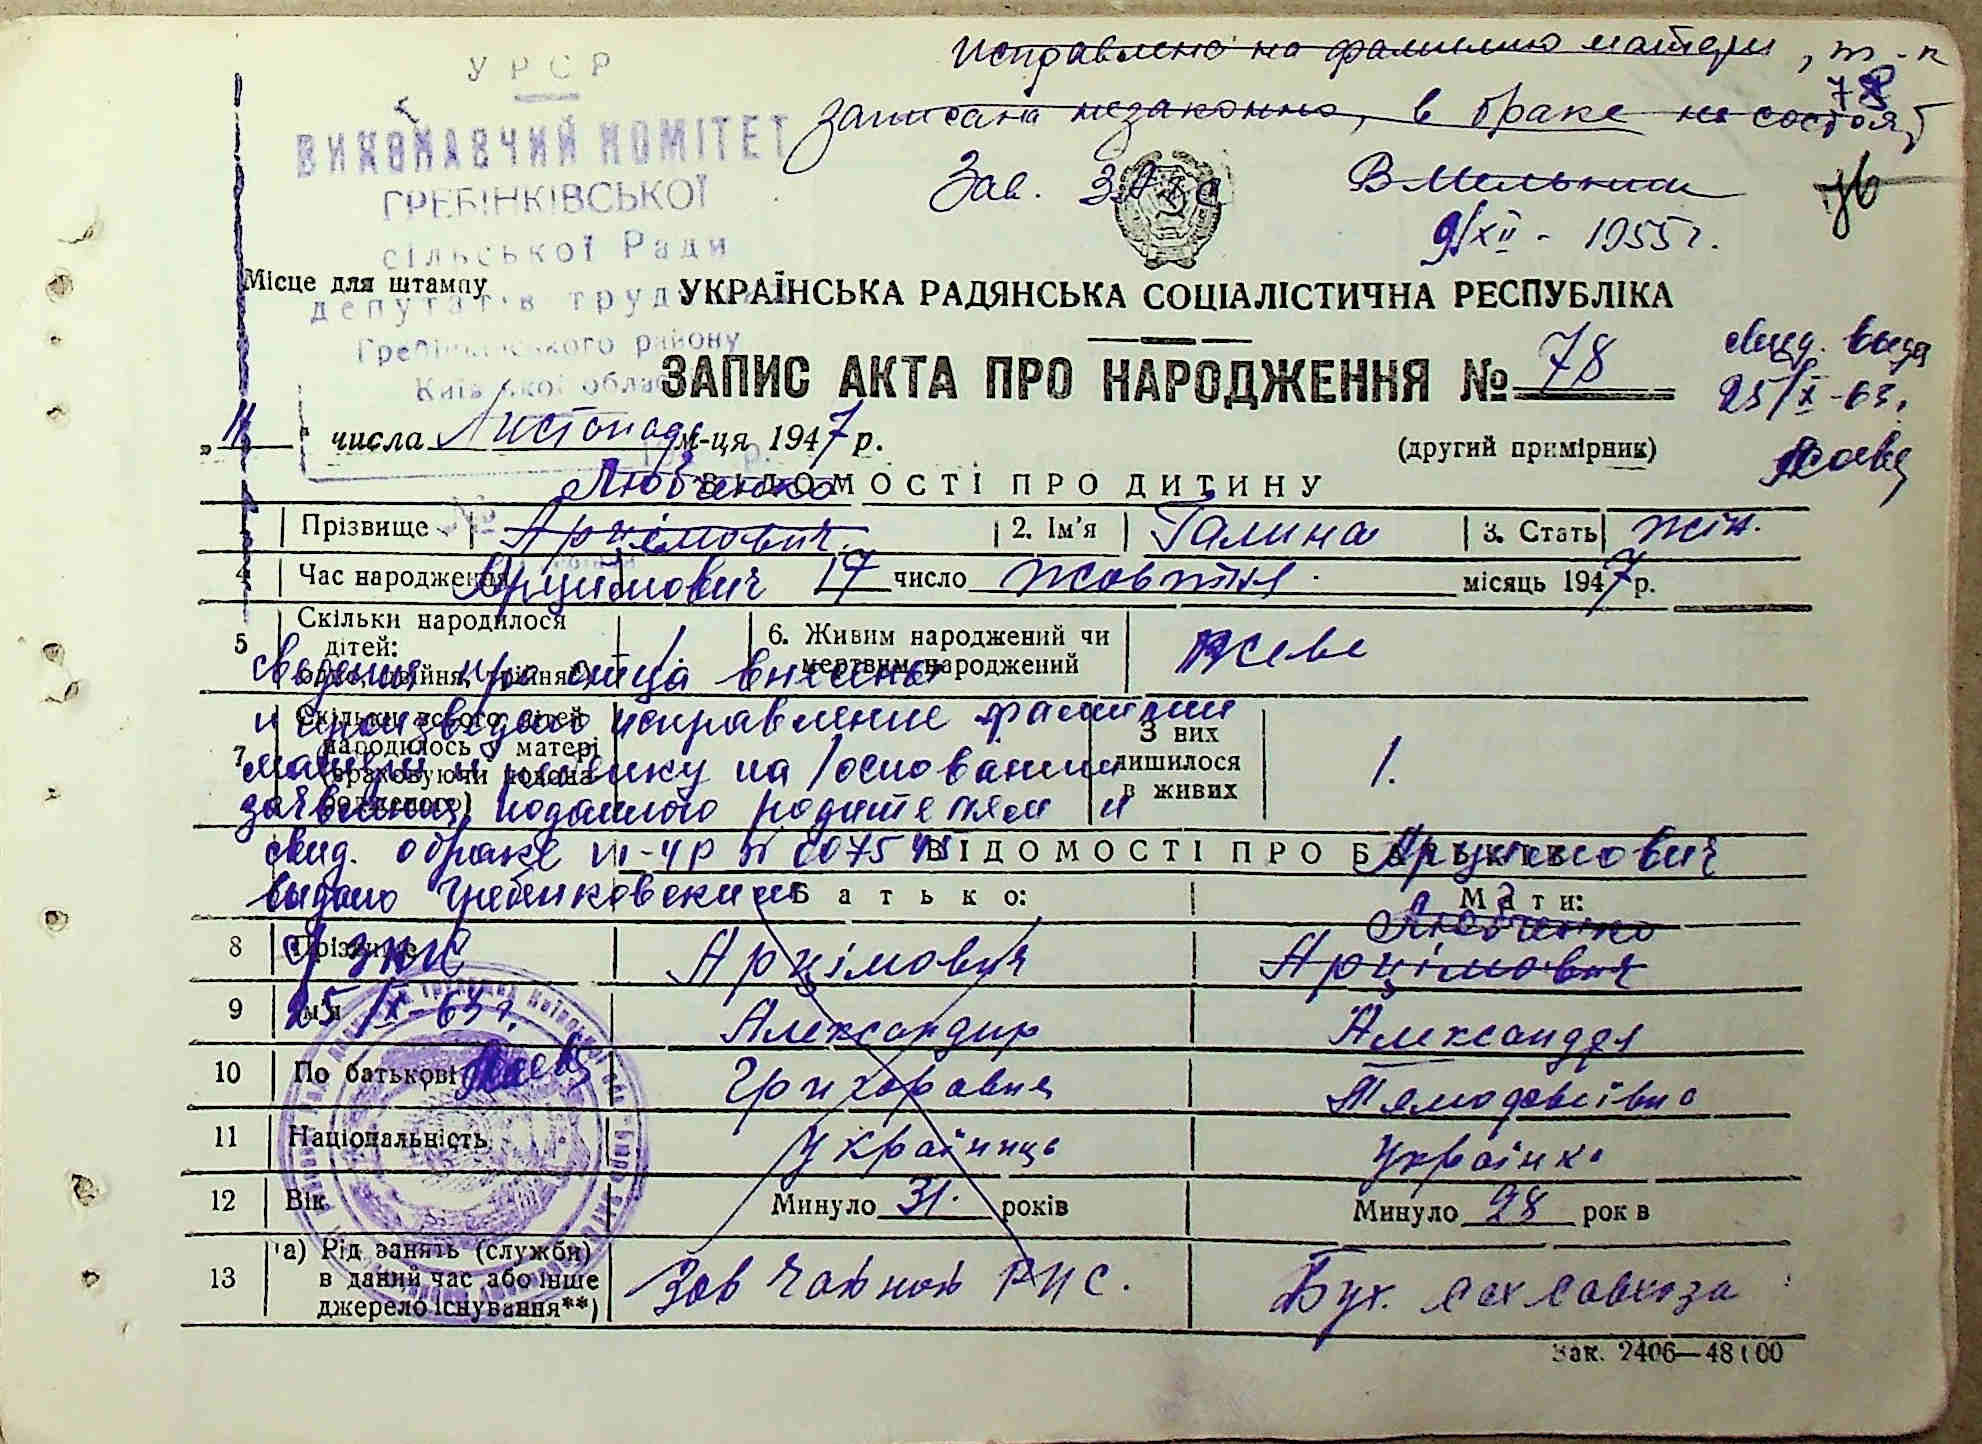 исправлено на фамилию матери, т-к
78
записана незаконно, в браке не состоят
Зав.
9/XII - 1955 г.
УРСР
ВИКОНАВЧИЙ КОМІТЕТ
ГРЕБІНКІВСЬКОЇ
сільської Ради
депутатів труд
Гребінківського району
Київської облас
Місце для штампу
УКРАЇНСЬКА РАДЯНСЬКА СОЦІАЛІСТИЧНА РЕСПУБЛІКА
ЗАПИС АКТА ПРО НАРОДЖЕННЯ № 78
свид. выда
25/X-63.
„11" числа Листопада м-ця 1947 р.
(другий примірник)
Любченко
ВІДОМОСТІ ПРО ДИТИНУ
Прізвище Арцімович 2. Ім'я Галина 3. Стать жін.
4 Час народження 17 число жовтня місяць 1947 р.
Арцимович
5 Скільки народилося дітей: одно, двійня, трійня 1. 6. Живим народжений чи мертвим народжений живе
7 Скільки всього дітей народилось у матері (враховуючи новонародженого) З них лишилося в живих 1.
сведения про отца внесены
и произведено исправление фамилии
матери и ребенку на основании
заявления, поданного родителями и
свид. о браке III-УР № 007545
выдано Гребенковским
РЗАГС
25/X-63 г.
ВІДОМОСТІ ПРО БАТЬКІВ
Арцимович
Батько: Мати:
Любченко
8 Прізвище Арцімович Арцімович
9 Ім'я Александр Александра
10 По батькові Григоравич Тимофеївна
11 Національність українець українка
12 Вік Минуло 31. років Минуло 28 рок в
13 а) Рід занять (служби) в даний час або інше джерело існування**) Зав чайной РПС. Бух. совхоза
Зак. 2406—48100